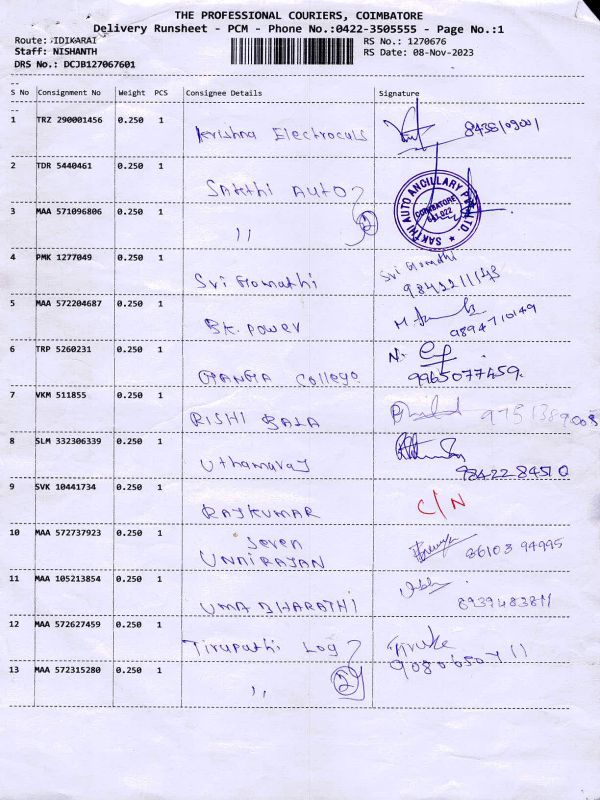 THE PROFESSIONAL COURIERS, COIMBATORE
Delivery Runsheet - PCM - Phone No.:0422-3505555 - Page No.:1
Route: IDIKARAI
RS No.: 1270676
Staff: NISHANTH
RS Date: 08-Nov-2023
DRS No.: DCJB127067601
S No Consignment No Weight PCS Consignee Details Signature
1 TRZ 290001456 0.250 1 Krishna Electrocals
2 TDR 5440461 0.250 1 SAKTHI AUTO
SAKTHI AUTO ANCILLARY PVT LTD.
COIMBATORE
641 022
3 MAA 571096806 0.250 1 ,, 2
4 PMK 1277049 0.250 1 Sri Gomathi Sri Gomathi
9842211143
5 MAA 572204687 0.250 1 BK. Power
9894710149
6 TRP 5260231 0.250 1 GANGA College N.
9965077459.
7 VKM 511855 0.250 1 RISHI BALA 9751389008
8 SLM 332306339 0.250 1 Uthamaraj
98422 84510
9 SVK 10441734 0.250 1 RAJKUMAR C/N
10 MAA 572737923 0.250 1 Seven
UNNIRAJAN 86103 94995
11 MAA 105213854 0.250 1 UMA BHARATHI 8939483811
12 MAA 572627459 0.250 1 Tirupathi Log
9080650711
13 MAA 572315280 0.250 1 ,, 2